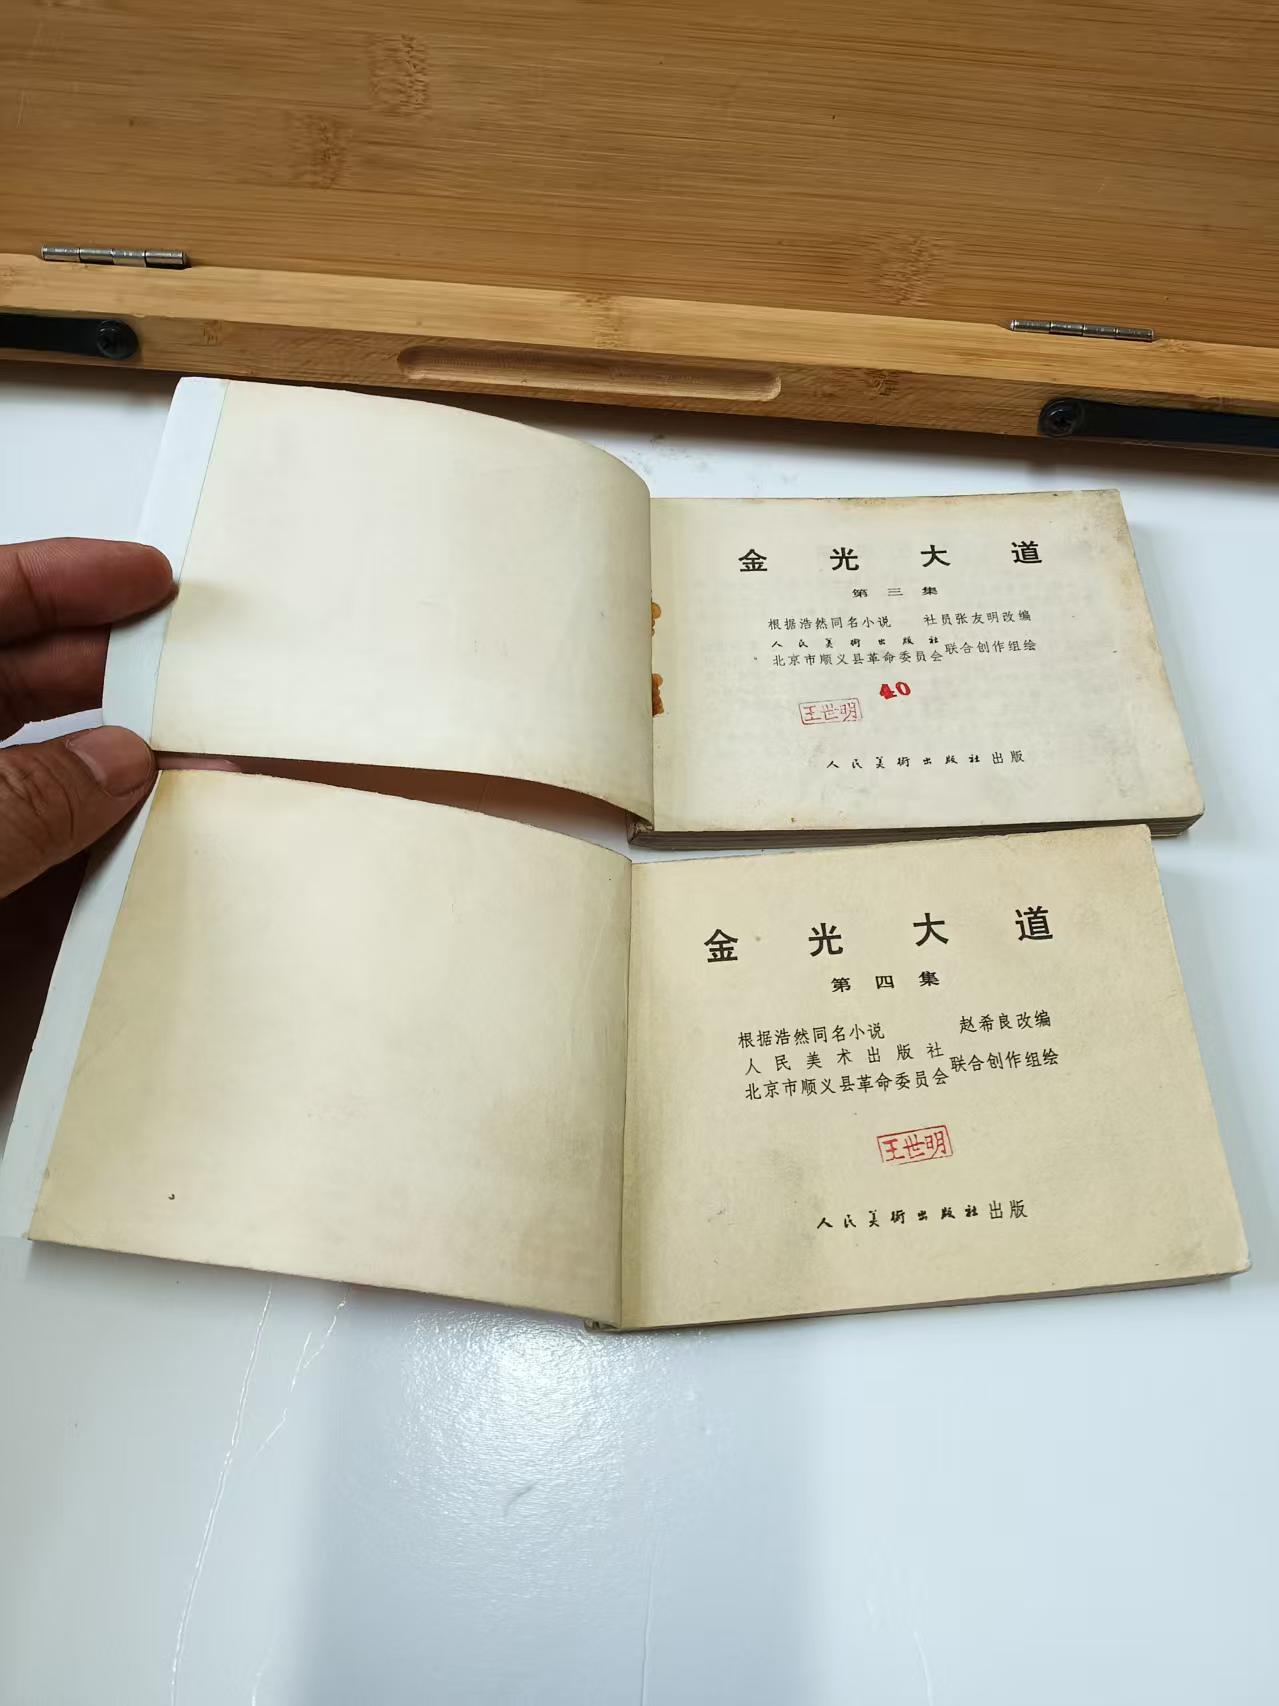 金光大道
第三集
根据浩然同名小说 社员张友明改编
人民美術出版社
北京市顺义县革命委员会联合创作组绘
40
王世明
人民美術出版社出版
金光大道
第四集
根据浩然同名小说 赵希良改编
人民美术出版社
北京市顺义县革命委员会联合创作组绘
王世明
人民美術出版社出版